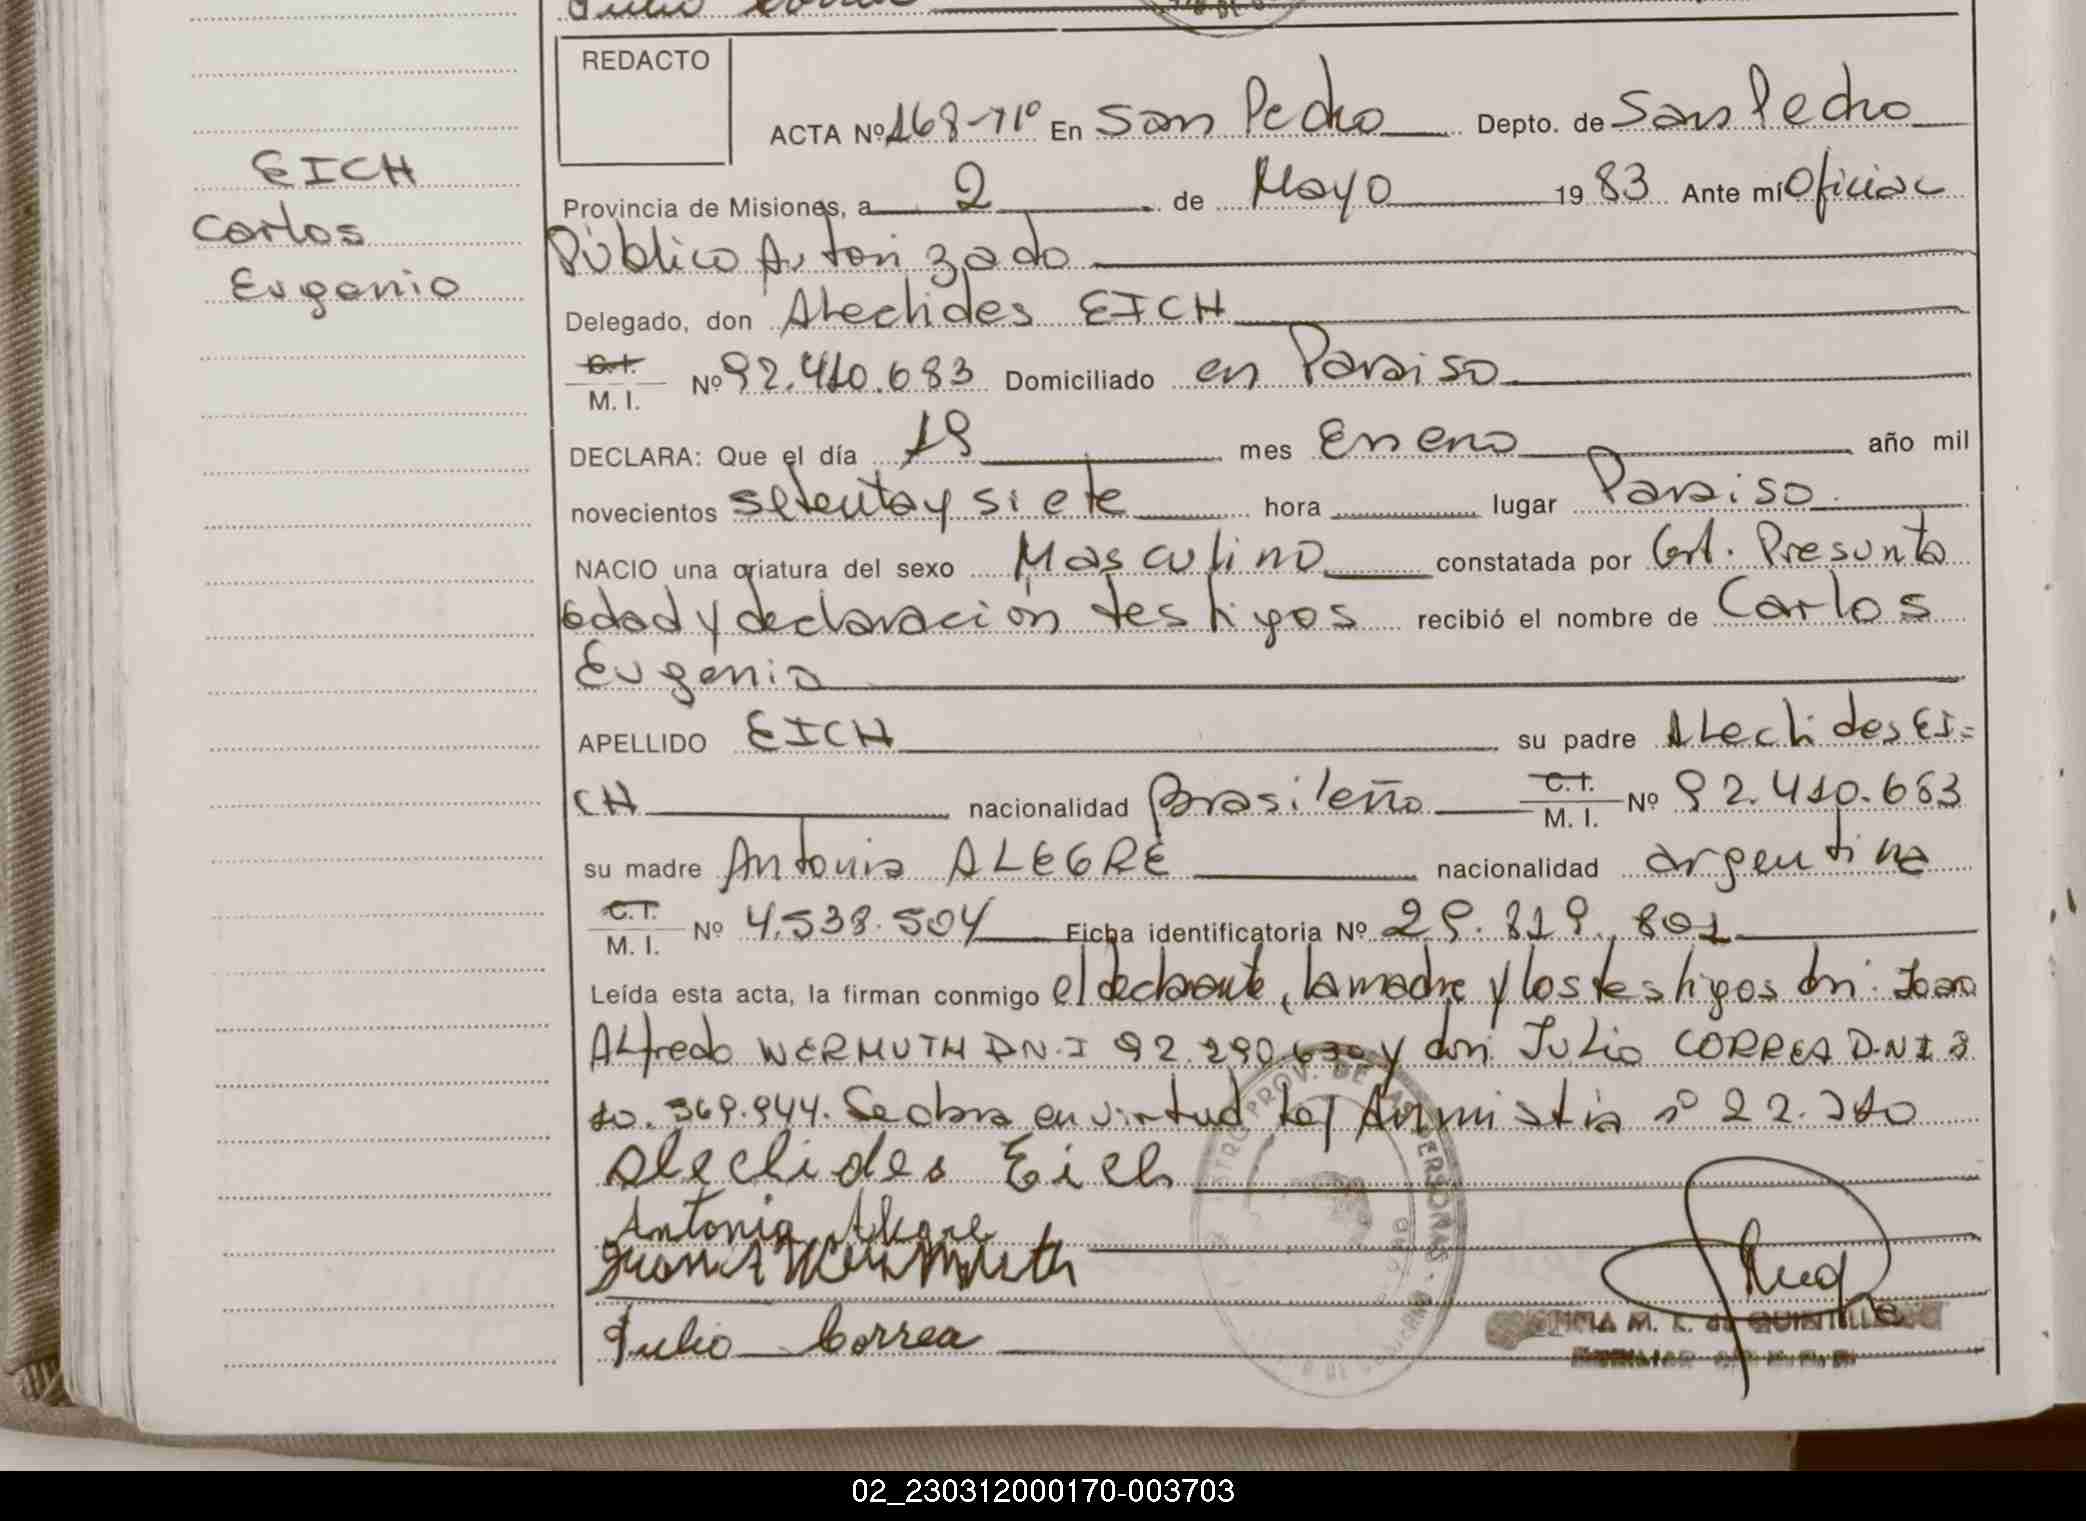 REDACTO
ACTA Nº 168-Tº En San Pedro Depto. de San Pedro
EICH
Carlos
Eugenio
Provincia de Misiones, a 2 de Mayo 1983 Ante mí Oficial
Público Autorizado
Delegado, don Alechides EICH
C.I.
M. I. Nº 92.410.683 Domiciliado en Paraiso
DECLARA: Que el día 19 mes Enero año mil
novecientos setenta y siete hora lugar Paraiso
NACIO una criatura del sexo Masculino constatada por Cert. Presunta
edad y declaración testigos recibió el nombre de Carlos
Eugenio
APELLIDO EICH su padre Alechides EI=
CH nacionalidad Brasileño C.I. M. I. Nº 92.410.683
su madre Antonia ALEGRE nacionalidad argentina
C.I.
M. I. Nº 4.538.504 Ficha identificatoria Nº 29.819.801
Leída esta acta, la firman conmigo el declarante, la madre y los testigos don: Juan
Alfredo WERMUTH D.N.I 92.290.630 y don Julio CORREA D.N.I
10.369.944. Se labra en virtud Ley Amnistia nº 22.
Alechides Eich
Antonia Alegre
Juan A Wermuth
Julio Correa
M. K. de QUINTILLE
02_230312000170-003703